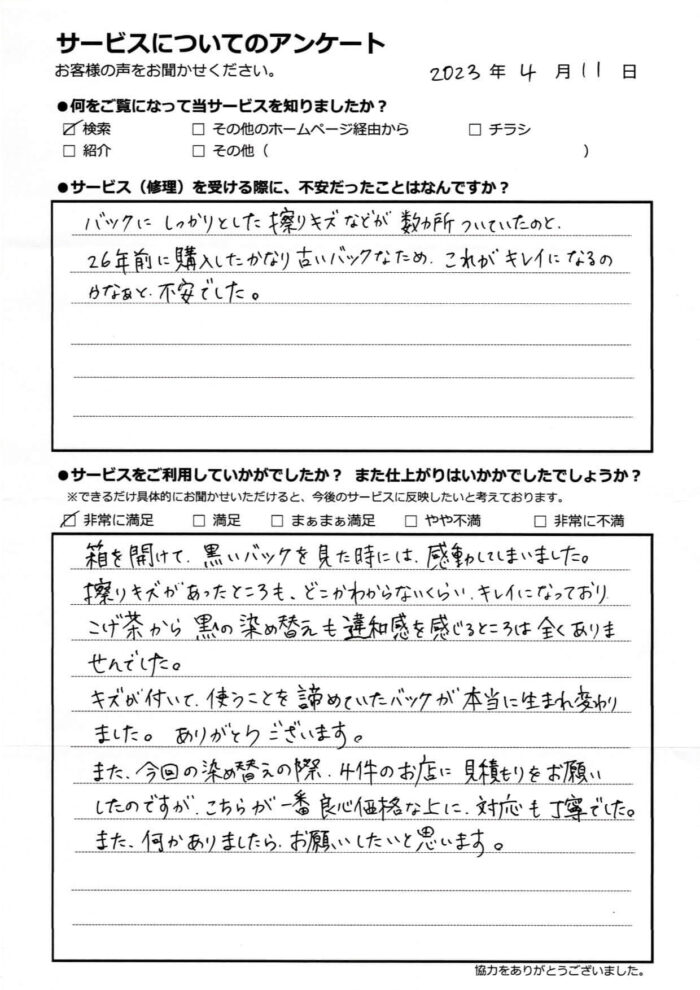 サービスについてのアンケート
お客様の声をお聞かせください。
2023 年 4 月 11 日
●何をご覧になって当サービスを知りましたか？
☑ 検索 □ その他のホームページ経由から □ チラシ
□ 紹介 □ その他（ ）
●サービス（修理）を受ける際に、不安だったことはなんですか？
バックに しっかりとした 擦りキズなどが 数カ所 ついていたのと、
26年前に購入したかなり古いバックなため、これが キレイに なるの
かなぁと、不安でした。
●サービスをご利用していかがでしたか？ また仕上がりはいかかでしたでしょうか？
※できるだけ具体的にお聞かせいただけると、今後のサービスに反映したいと考えております。
☑ 非常に満足 □ 満足 □ まぁまぁ満足 □ やや不満 □ 非常に不満
箱を開けて、黒いバックを見た時には、感動してしまいました。
擦りキズがあったところも、どこかわからないくらい、キレイになっており
こげ茶から 黒の染め替えも違和感を感じるところは全くありま
せんでした。
キズが付いて、使うことを諦めていたバックが本当に生まれ変わり
ました。ありがとうございます。
また、今回の染め替えの際、4件のお店に見積もりをお願い
したのですが、こちらが一番良心価格な上に、対応も丁寧でした。
また、何かありましたら、お願いしたいと思います。
協力をありがとうございました。